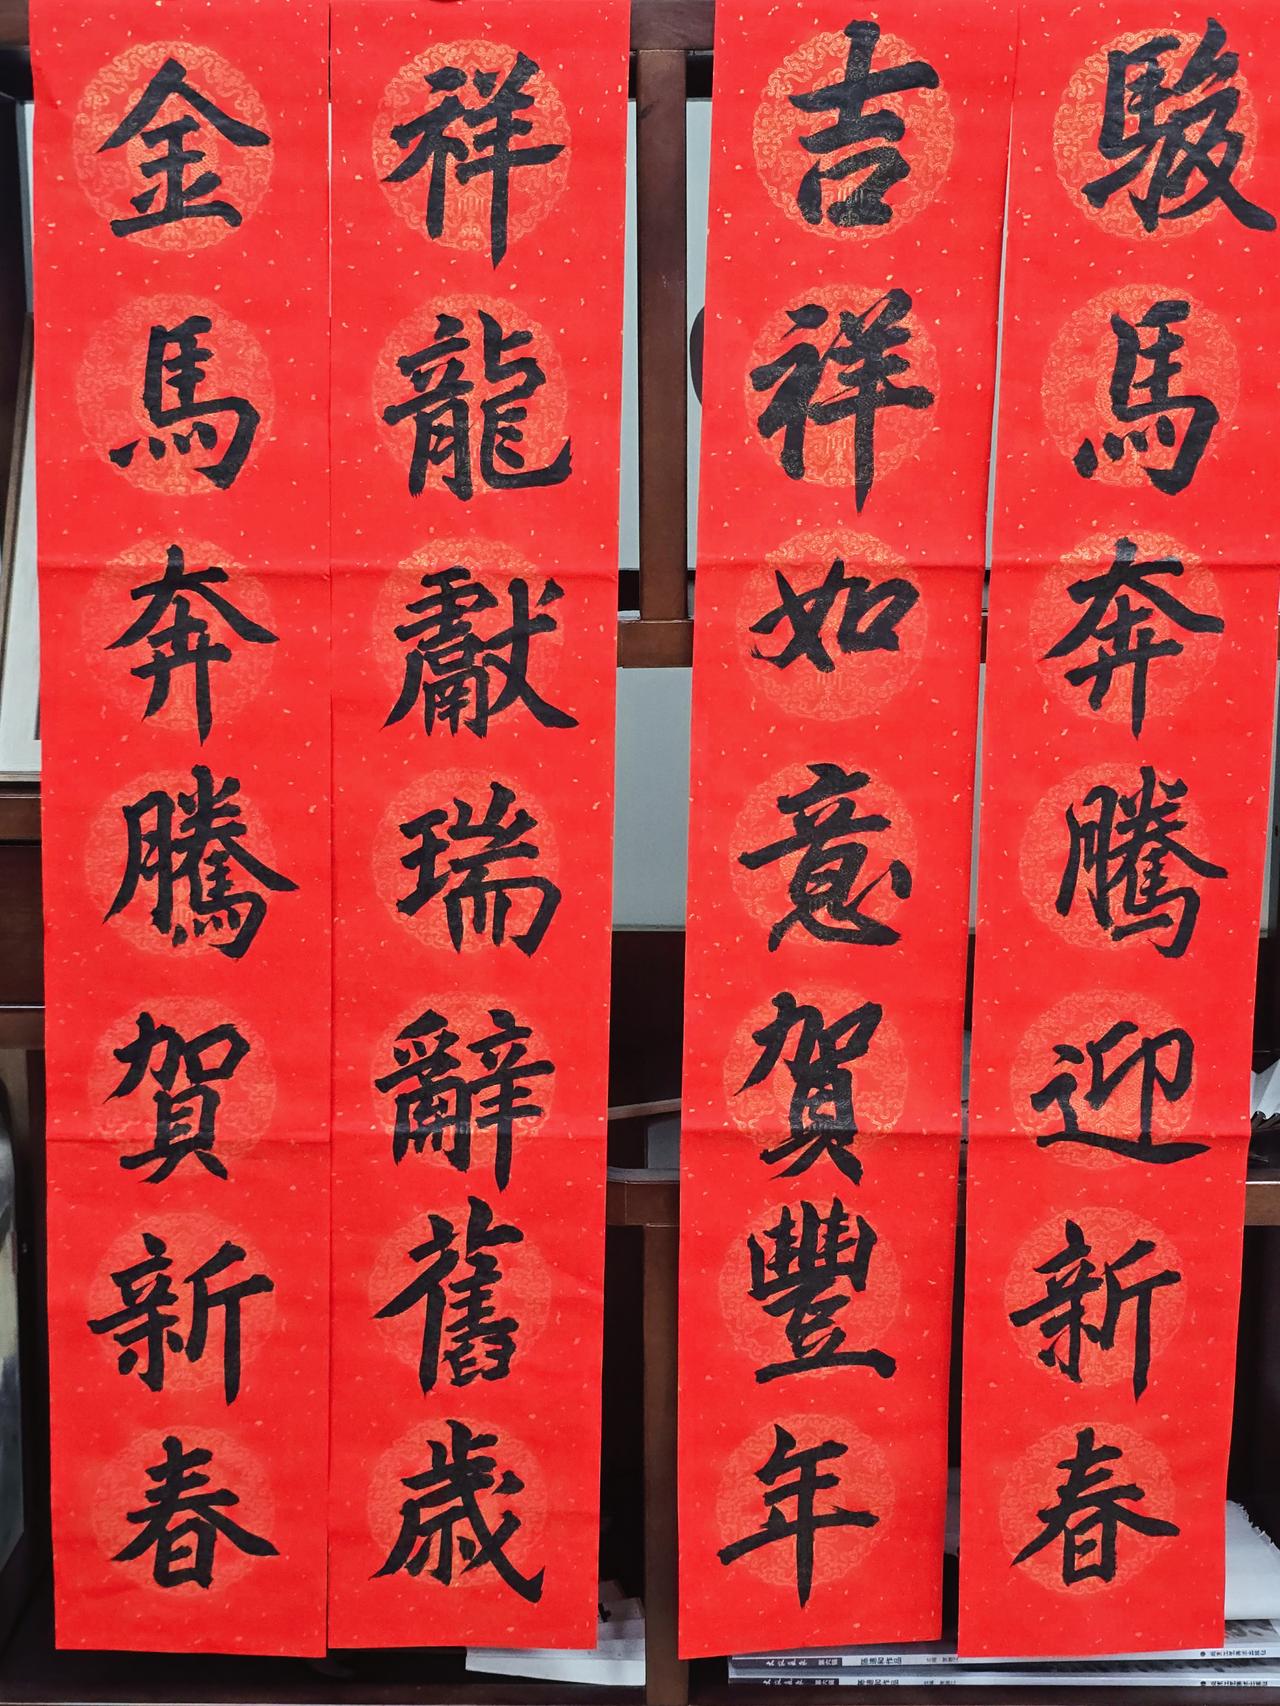 駿馬奔騰迎新春
吉祥如意賀豐年
祥龍獻瑞辭舊歲
金馬奔騰賀新春